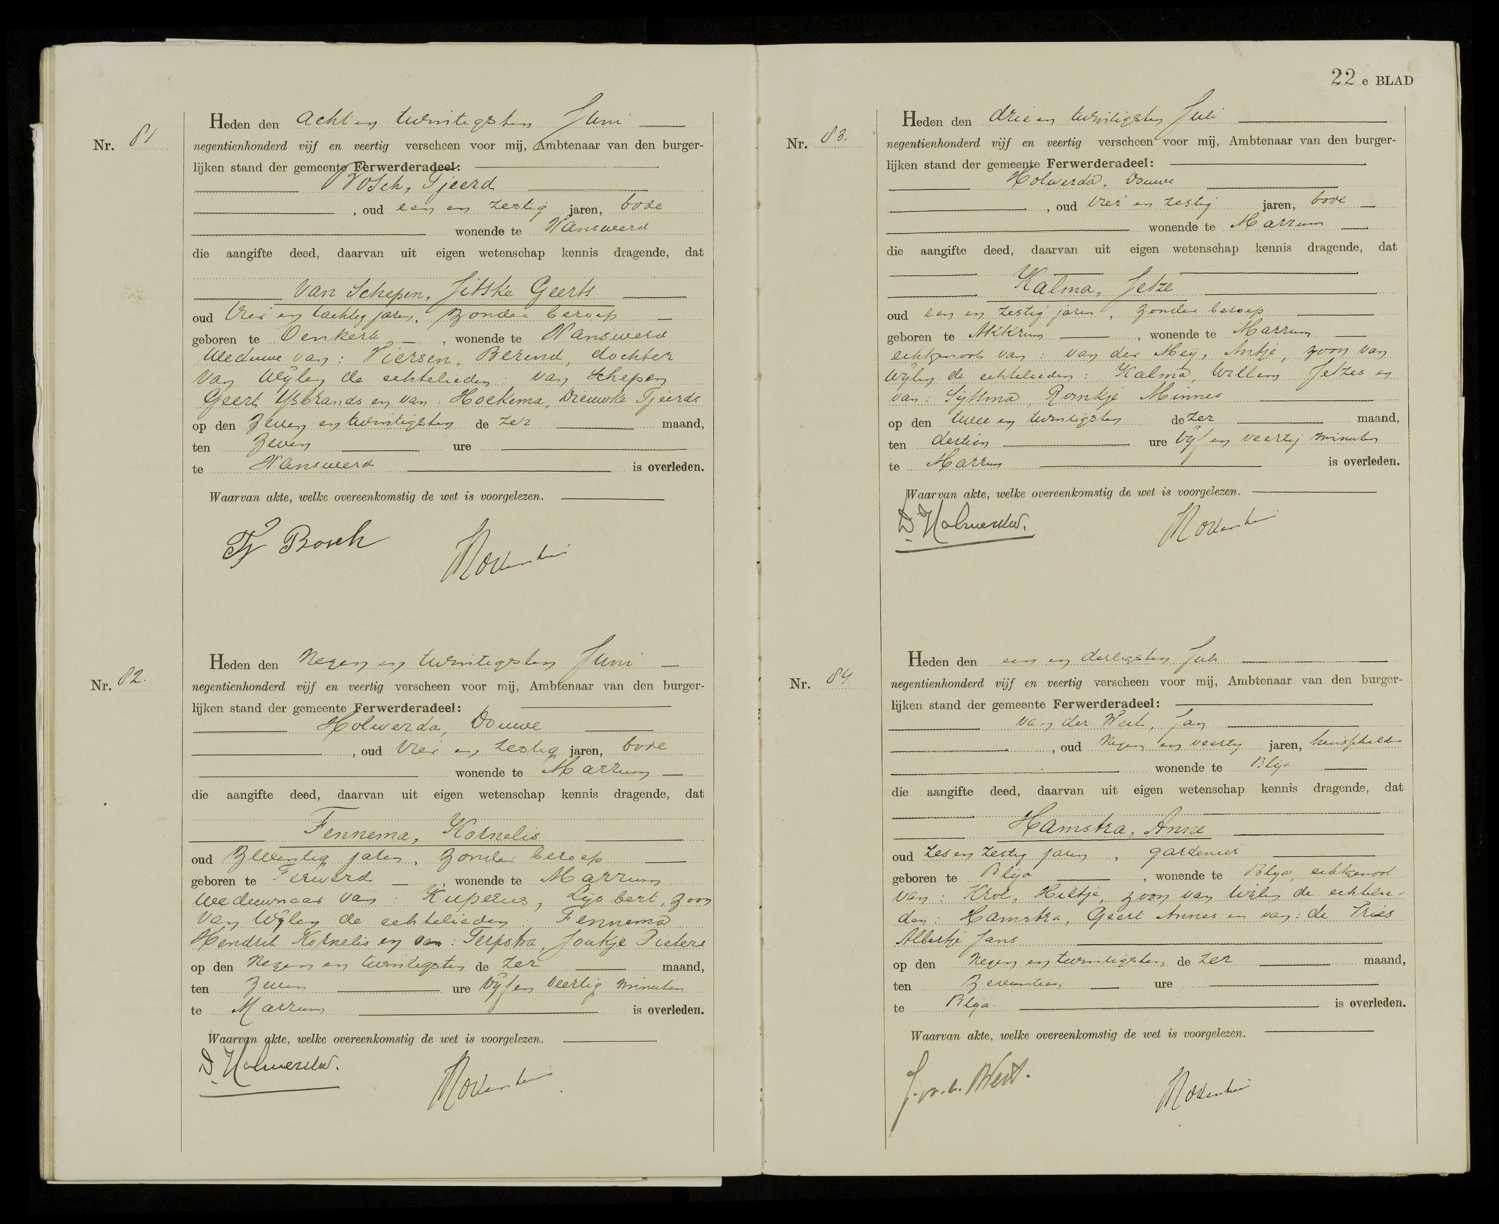 Nr. 81
Heden den acht en twintigsten Juni
negentienhonderd vijf en veertig verscheen voor mij, Ambtenaar van den burger-
lijken stand der gemeente Ferwerderadeel:
Bosch, Tjeerd
, oud een en zestig jaren, bode
wonende te Wanswerd
die aangifte deed, daarvan uit eigen wetenschap kennis dragende, dat
van Schepen, Jitske Geerts
oud drie en tachtig jaren, zonder beroep
geboren te Oenkerk, wonende te Wanswerd
weduwe van: Wiersen, Berend, dochter
van wijlen de echtelieden: van Schepen
Geert IJsbrands en van: Hoekema, Dieuwke Tjeerds
op den zeven en twintigsten de zer maand,
ten zeven ure
te Wanswerd is overleden.
Waarvan akte, welke overeenkomstig de wet is voorgelezen.
Tj Bosch
Nr. 82.
Heden den negen en twintigsten Juni
negentienhonderd vijf en veertig verscheen voor mij, Ambtenaar van den burger-
lijken stand der gemeente Ferwerderadeel:
Holwerda, Douwe
, oud drie en zestig jaren, bode
wonende te Marrum
die aangifte deed, daarvan uit eigen wetenschap kennis dragende, dat
Fennema, Kornelis
oud zeventig jaren, zonder beroep
geboren te Ferwerd, wonende te Marrum
weduwnaar van: Kuperus, Lijsbert, zoon
van wijlen de echtelieden Fennema
Hendrik Kornelis en van: Terpstra, Joukje Pieters
op den negen en twintigsten de zer maand,
ten zeven ure vijf en veertig minuten
te Marrum is overleden.
Waarvan akte, welke overeenkomstig de wet is voorgelezen.
D. Holwerda.
22 e BLAD
Nr. 83.
Heden den drie en twintigsten Juli
negentienhonderd vijf en veertig verscheen voor mij, Ambtenaar van den burger-
lijken stand der gemeente Ferwerderadeel:
Holwerda, Douwe
, oud drie en zestig jaren, bode
wonende te Marrum
die aangifte deed, daarvan uit eigen wetenschap kennis dragende, dat
Kalma, Jetze
oud een en zestig jaren, zonder beroep
geboren te Akkrum, wonende te Marrum
echtgenoot van: van der Mey, Antje, zoon van
wijlen de echtelieden: Kalma, Willem Jetzes en
van: Sijtsma, Romkje Minnes
op den twee en twintigsten de zer maand,
ten dertien ure vijf en veertig minuten
te Marrum is overleden.
Waarvan akte, welke overeenkomstig de wet is voorgelezen.
D. Holwerda.
Nr. 84
Heden den een en dertigsten Juli
negentienhonderd vijf en veertig verscheen voor mij, Ambtenaar van den burger-
lijken stand der gemeente Ferwerderadeel:
van der Weit, Jan
, oud negen en veertig jaren,
wonende te Blija
die aangifte deed, daarvan uit eigen wetenschap kennis dragende, dat
Hamstra, Anne
oud zes en zestig jaren, gardenier
geboren te Blija, wonende te Blija, echtgenoot
van: Krol, Hiltje, zoon van wijlen de echtelie-
den: Hamstra, Geert Annes en van: de Vries
Albertje Jans
op den negen en twintigsten de zer maand,
ten zeventien ure
te Blija is overleden.
Waarvan akte, welke overeenkomstig de wet is voorgelezen.
J. v. d. Weit.